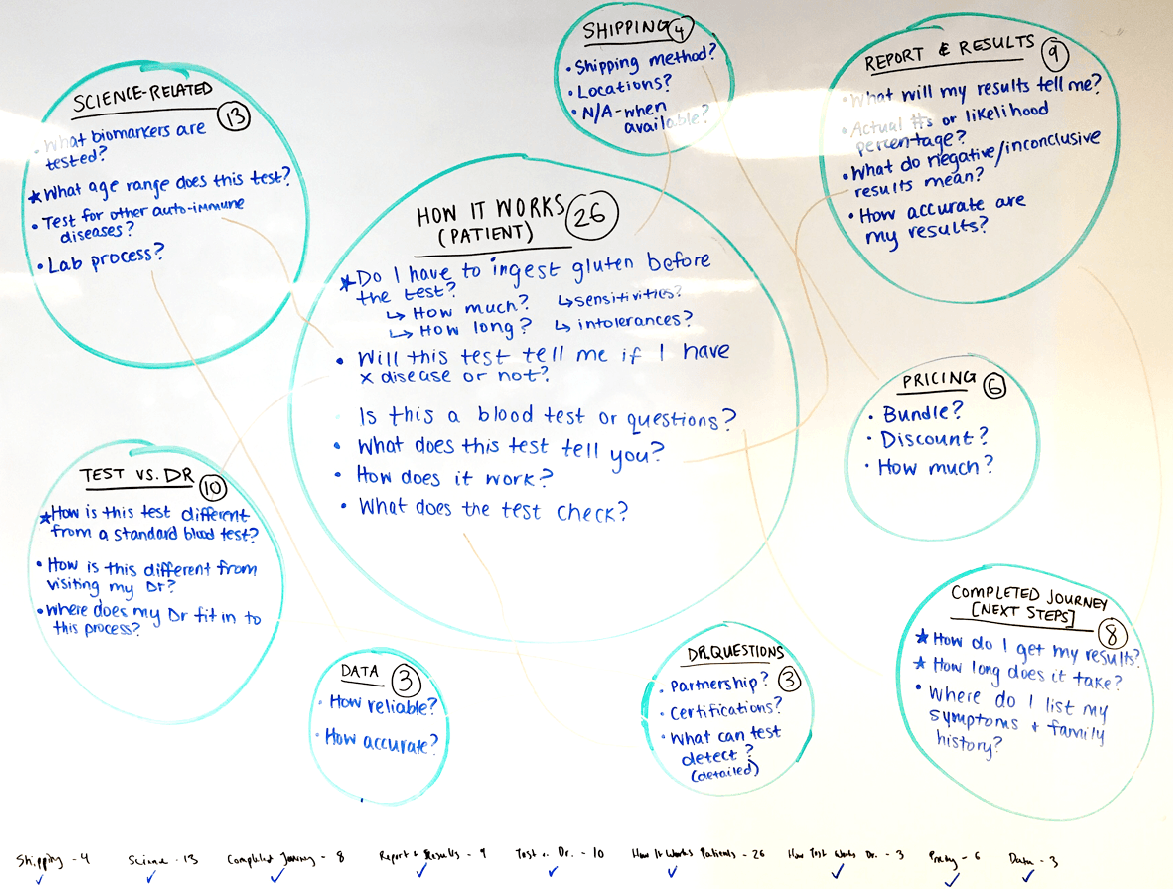 SHIPPING 4
• Shipping method?
• Locations?
• N/A-when
available?
REPORT & RESULTS 9
• What will my results tell me?
• Actual #s or likelihood
percentage?
• What do negative/inconclusive
results mean?
• How accurate are
my results?
SCIENCE-RELATED
13
• What biomarkers are
tested?
★ What age range does this test?
• Test for other auto-immune
diseases?
• Lab process?
HOW IT WORKS 26
(PATIENT)
★ Do I have to ingest gluten before
the test?
↳ How much? ↳ sensitivities?
↳ How long? ↳ intolerances?
• Will this test tell me if I have
x disease or not?
Is this a blood test or questions?
• What does this test tell you?
• How does it work?
• What does the test check?
PRICING 6
• Bundle?
• Discount?
• How much?
TEST VS. DR 10
★ How is this test different
from a standard blood test?
• How is this different from
visiting my Dr?
• Where does my Dr fit in to
this process?
DATA 3
• How reliable?
• How accurate?
DR. QUESTIONS
• Partnership? 3
• Certifications?
• What can test
detect?
(detailed)
COMPLETED JOURNEY
[NEXT STEPS] 8
★ How do I get my results?
★ How long does it take?
• Where do I list my
symptoms + family
history?
Shipping - 4 Science - 13 Completed Journey - 8 Report & Results - 9 Test v. Dr. - 10 How It Works Patients - 26 How Test Works Dr. - 3 Pricing - 6 Data - 3